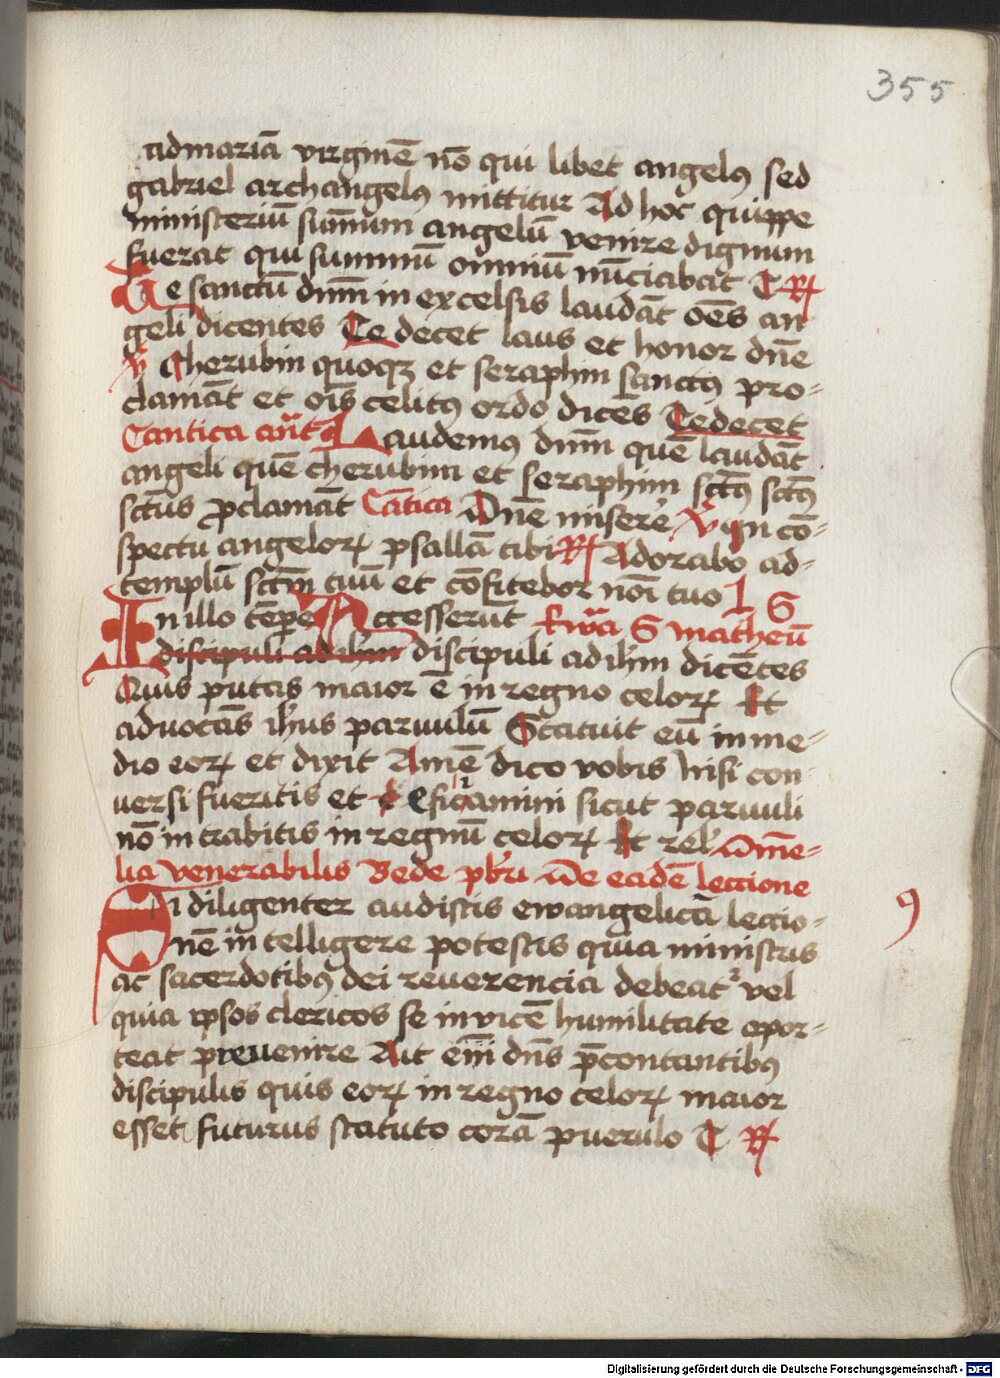 355
ad mariā virginē nō qui libet angelꝰ sed
gabriel archangelꝰ mittitur Ad hoc quippe
ministeriū sum̄um angelū venire dignum
fuerat qui summū omniū nūciabat T R̸
Te sanctū dnm̄ in excelsis laudāt oēs an
geli dicentes Te decet laus et honor dn̄e
v̄ Cherubin quoqꝫ et seraphin sanctꝰ pro-
clamāt et oīs celitꝰ ordo dicēs Te decet
Cantica an̄t Laudemꝰ dnm̄ quē laudāt
angeli quē cherubim et seraphim sctꝰ sctꝰ
sct̄us ꝓclamāt Cātica Dn̄e miserē v̄ In cō-
spectu angeloꝝ psallā tibi R̸ Adorabo ad-
templū sctm̄ tuū et cōfitebor noī tuo L S
In illo tēpe Accesserūt Ewā S matheū
discipuli ad ihm̄ discipuli ad ihm̄ dicētes
Quis putas maior ē in regno celoꝝ Et
aduocās ih̄us paruulū Statuit eū in me-
dio eoꝝ et dixit Amē dico vobis Nisi con
uersi fueritis et efficiamini sicut paruuli
nō intrabitis in regnū celoꝝ Et rel Om̄e-
lia venerabilis Bede pb̄ri De eadē lectione
Si diligenter audistis ewangelicā lectio-
nē intelligere potestis quia ministris
ac sacerdotibꝰ dei reuerencia debeat᷑ vel
quia ipsos clericos se inuicē humilitate opor-
teat preuenire Ait em̄ dn̄s p̄contantibꝰ
discipulis quis eoꝝ in regno celoꝝ maior
esset futurus statuto corā puerulo T R̸
9
Digitalisierung gefördert durch die Deutsche Forschungsgemeinschaft - DFG